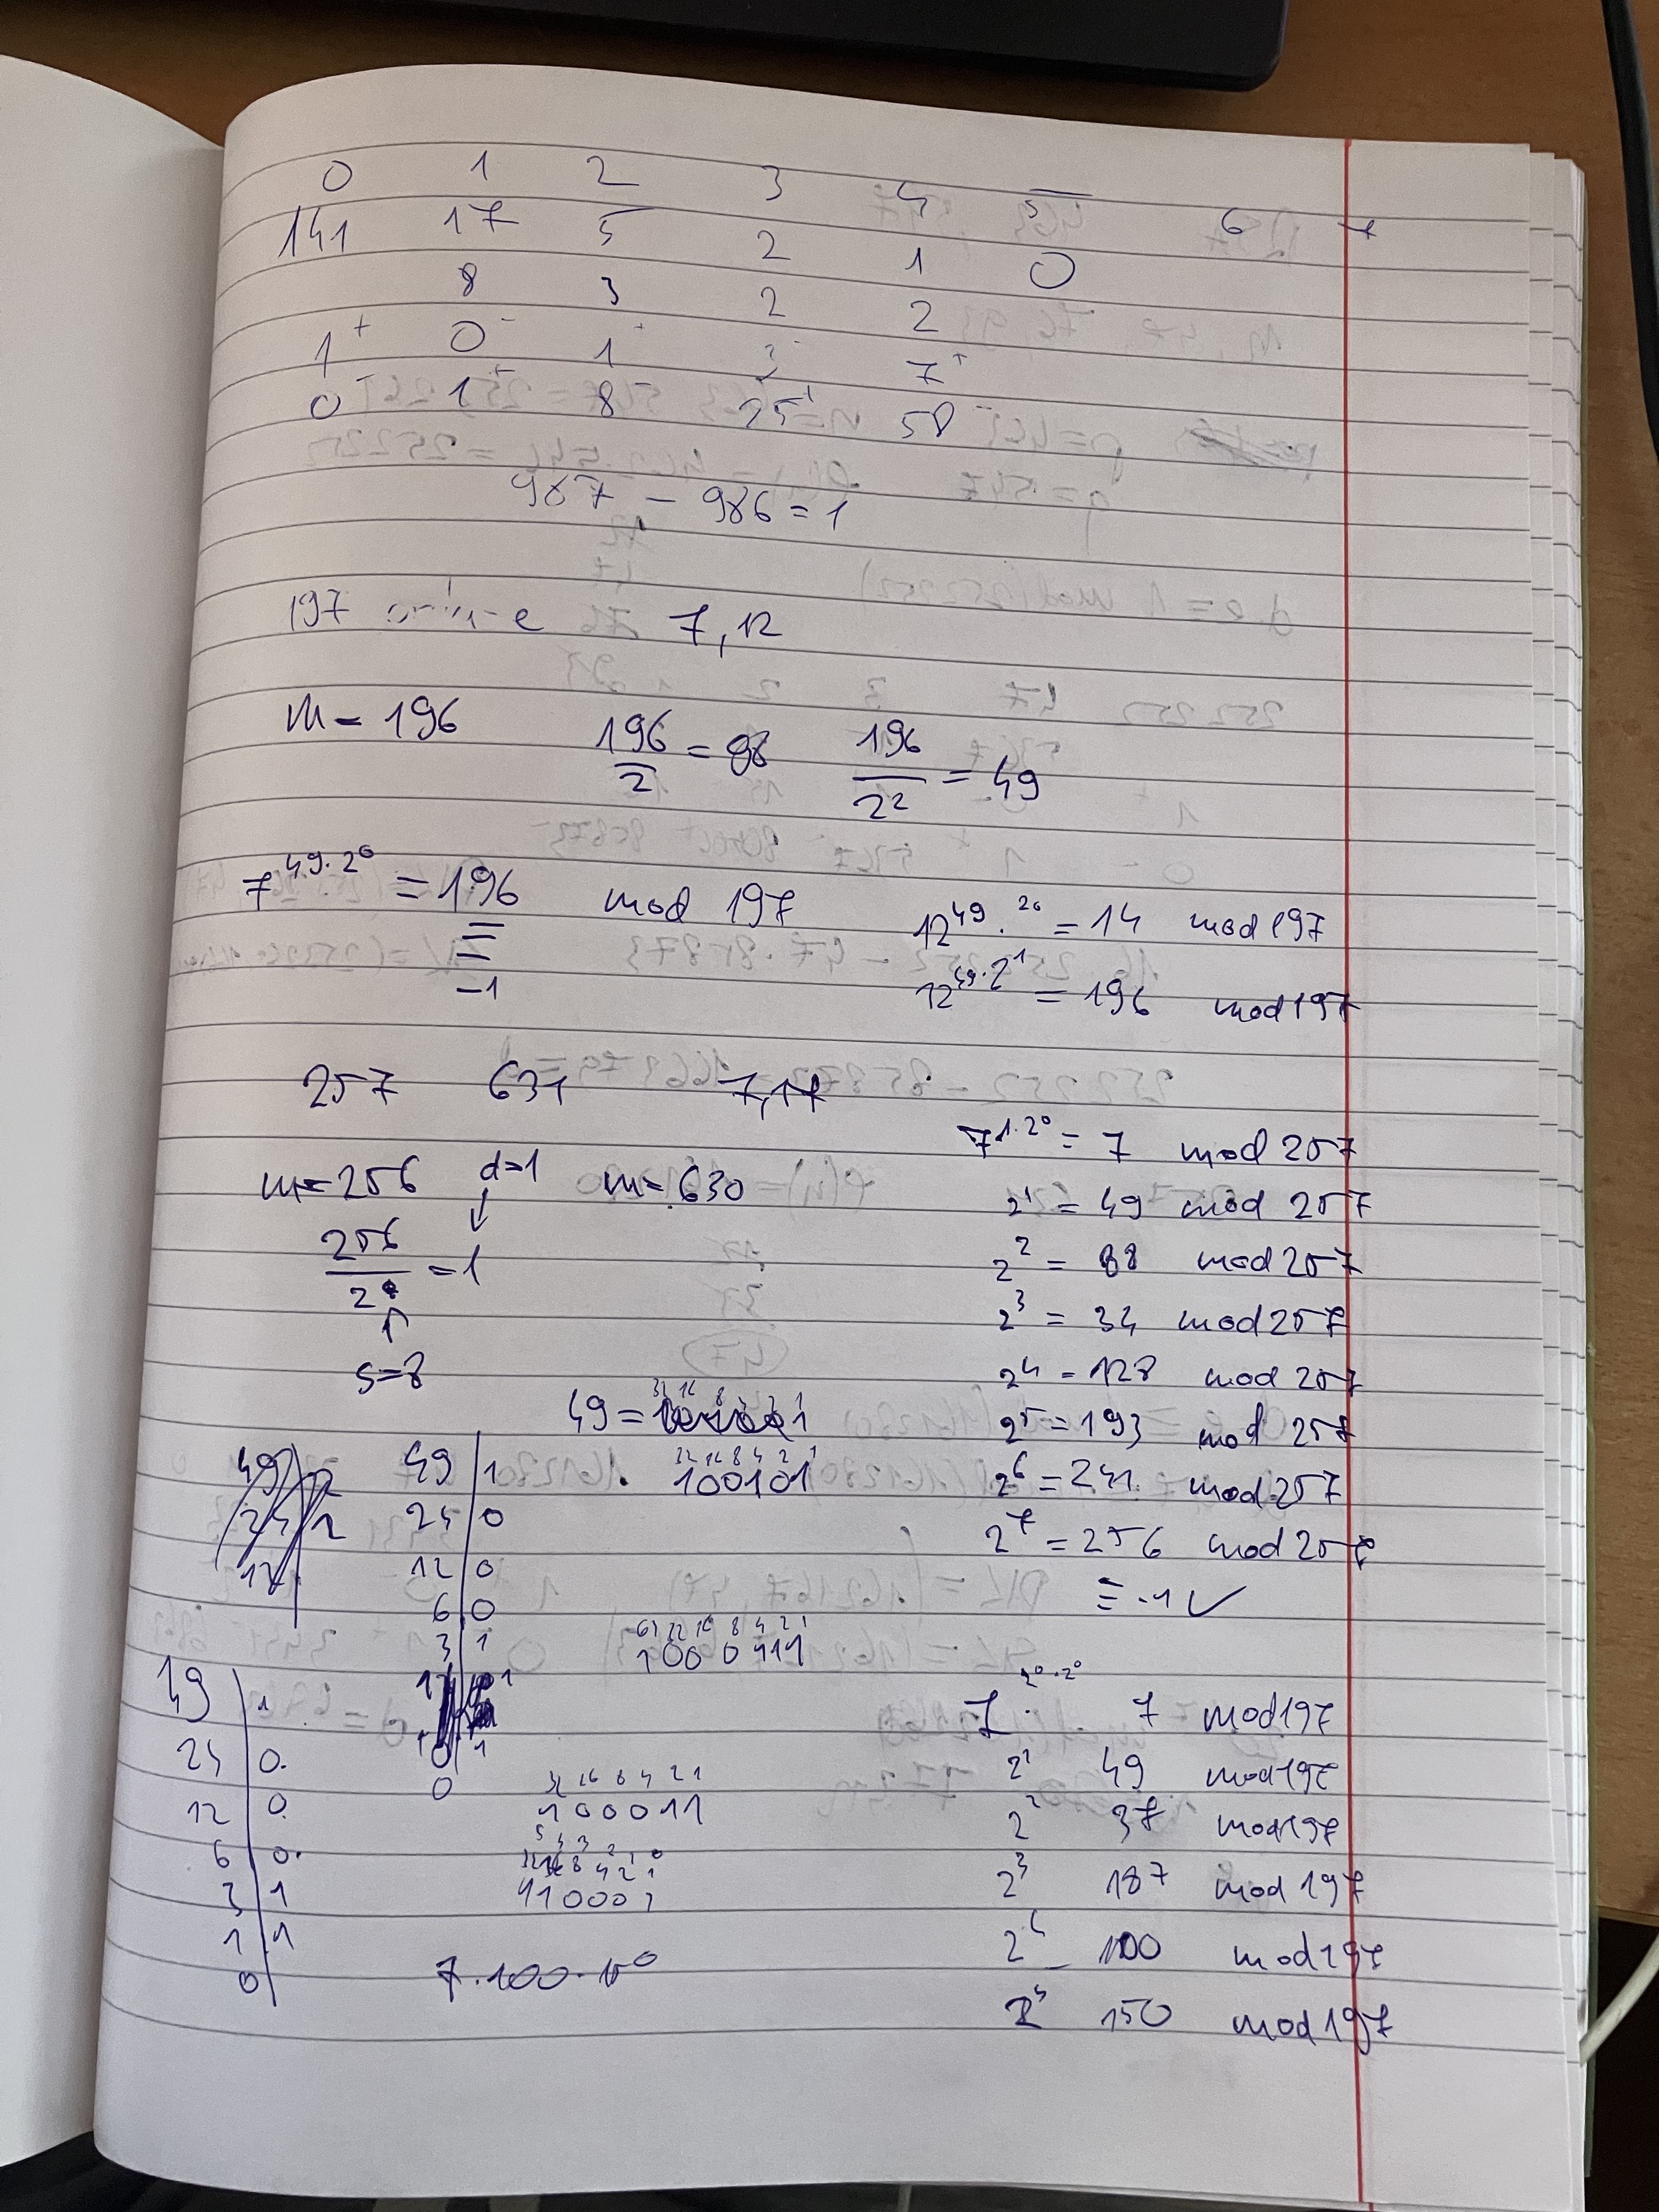 0 1 2 3 4 5 6 7
141 17 5 2 1 0
8 3 2 2
1+ 0- 1+ 3- 7+
0- 1+ 8- 25+ 58-
987 - 986 = 1
197 7, 12
m = 196 196/2 = 98 196/2² = 49
7^{49·2^0} = 196 mod 197
≡ -1
12^{49·2^0} = 14 mod 197
12^{49·2^1} = 196 mod 197
257 631 7, 17
m = 256 d=1 m = 630
256/2^8 = 1
s=8
7^{1·2^0} = 7 mod 257
2^1 = 49 mod 257
2^2 = 88 mod 257
2^3 = 34 mod 257
2^4 = 128 mod 257
2^5 = 193 mod 257
2^6 = 241 mod 257
2^7 = 256 mod 257
≡ -1 ✓
32 16 8 4 2 1
49 =
32 16 8 4 2 1
100101
49 | 1
24 | 0
12 | 0
6 | 0
3 | 1
1
0
64 32 16 8 4 2 1
1000111
49 | 1
24 | 0
12 | 0
6 | 0
3 | 1
1 | 1
0
32 16 8 4 2 1
100011
5 4 3 2 1 0
32 16 8 4 2 1
110001
7·100·150
7^{2^0·2^0} 7 mod 197
2^1 49 mod 197
2^2 37 mod 197
2^3 187 mod 197
2^4 100 mod 197
2^5 150 mod 197